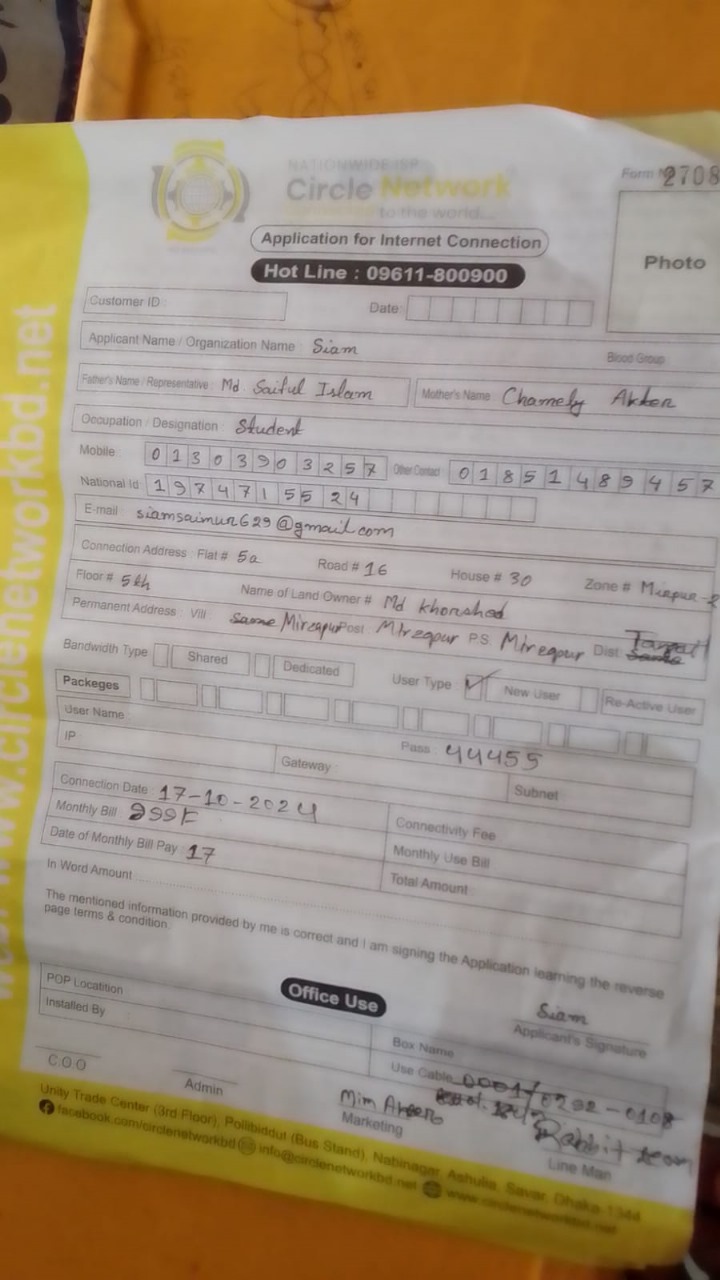 NATIONWIDE ISP
Circle Network
to the world...
Form 2708
Application for Internet Connection
Hot Line : 09611-800900
Photo
Customer ID :
Date:
Applicant Name / Organization Name : Siam
Blood Group
Father's Name / Representative : Md. Saiful Islam
Mother's Name Chamely Akter
Occupation / Designation Student
Mobile : 01303903257 Other Contact 01851489457
National Id 1974715524
E-mail siamsaimur629@gmail.com
Connection Address : Flat # 5a Road # 16 House # 30 Zone # Mirpur-2
Floor # 5th Name of Land Owner # Md khorshed
Permanent Address : Vill same Mirzapur Post Mirzapur P.S. Mirzapur Dist
Bandwidth Type Shared Dedicated User Type New User Re-Active User
Packeges
User Name : Pass : 44455
IP : Gateway : Subnet
Connection Date : 17-10-2024 Connectivity Fee
Monthly Bill Monthly Use Bill
Date of Monthly Bill Pay : 17 Total Amount
In Word Amount
The mentioned information provided by me is correct and I am signing the Application learning the reverse
page terms & condition.
Siam
Applicant's Signature
Office Use
POP Locatition : Box Name
Installed By Use Cable 0292-0108
C.O.O Admin Mim Akter
Marketing
Rabbit team
Line Man
Unity Trade Center (3rd Floor), Pollibiddut (Bus Stand), Nabinagar, Ashulia, Savar, Dhaka-1344
facebook.com/circlenetworkbd info@circlenetworkbd.net www.circlenetworkbd.net
www.circlenetworkbd.net